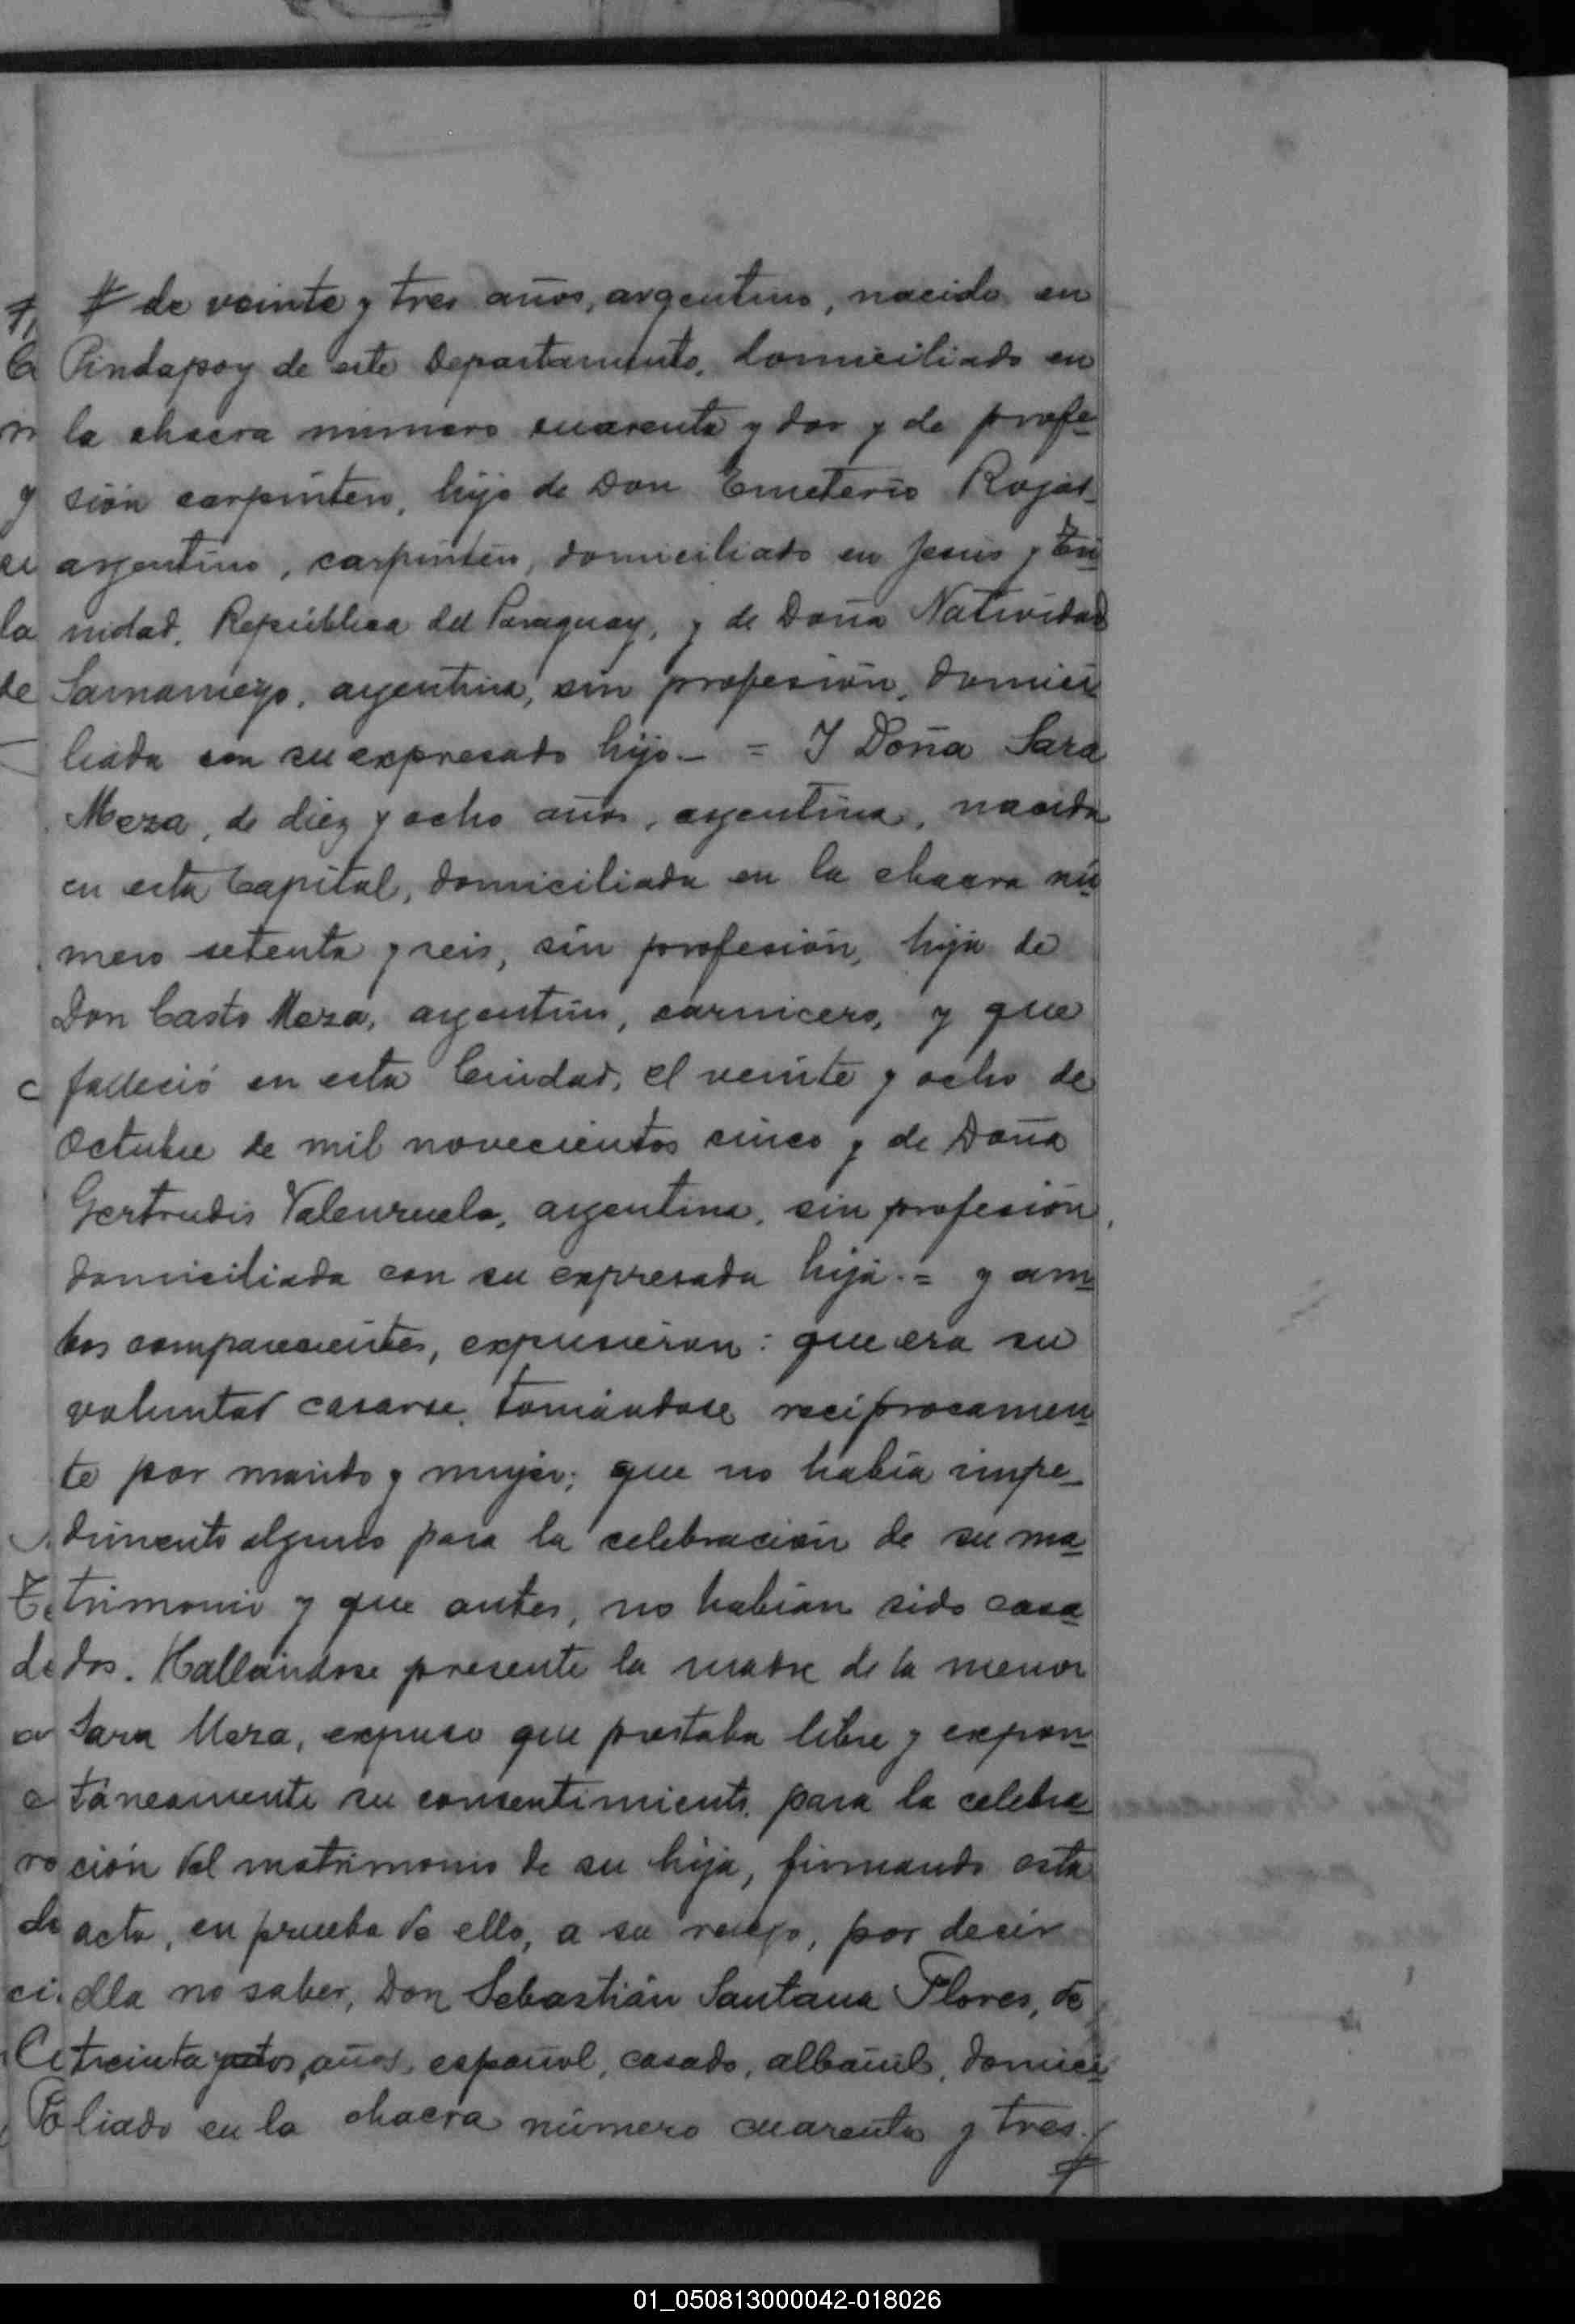 # de veinte y tres años, argentino, nacido en
Pindapoy de este Departamento, domiciliado en
la chacra número cuarenta y dos y de profe-
sión carpintero, hijo de Don Emeterio Rojas,
argentino, carpintero, domiciliado en Jesus y Tri-
nidad, República del Paraguay, y de Doña Natividad
Samaniego, argentina, sin profesión, domici-
liada con su expresado hijo.- = Y Doña Sara
Meza, de diez y ocho años, argentina, nacida
en esta Capital, domiciliada en la chacra nú-
mero setenta y seis, sin profesión, hija de
Don Casto Meza, argentino, carnicero, y que
falleció en esta Ciudad, el veinte y ocho de
Octubre de mil novecientos cinco y de Doña
Gertrudis Valenzuela, argentina, sin profesión,
domiciliada con su expresada hija.= y am-
bos comparecientes, expusieron: que era su
voluntad casarse, tomándose reciprocamen-
te por marido y mujer; que no había impe-
dimento alguno para la celebración de su ma-
trimonio y que antes, no habían sido casa-
dos. Hallándose presente la madre de la menor
Sara Meza, expuso que prestaba libre y expon-
táneamente su consentimiento, para la celebra-
ción del matrimonio de su hija, firmando esta
acta, en prueba de ello, a su ruego, por decir
ella no saber, Don Sebastián Santana Flores, de
treinta y dos años, español, casado, albañil, domici-
liado en la chacra número cuarenta y tres.
#
01_050813000042-018026